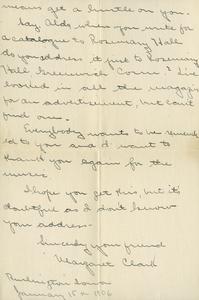 means get a hustle on you.
Say, Aldo, when you write for
a catalogue to Rosemary Hall
do you address it just to Rosemary
Hall Greenwich Conn? I've
looked in all the magazines
for an advertisement, but can't
find one.
Everybody wants to be remembered
to you and I want to
thank you again for the
music.
I hope you get this, but it's
doubtful as I don't know
your address.
Sincerely your friend
Margaret Clark
Burlington Iowa
January 15th 1906